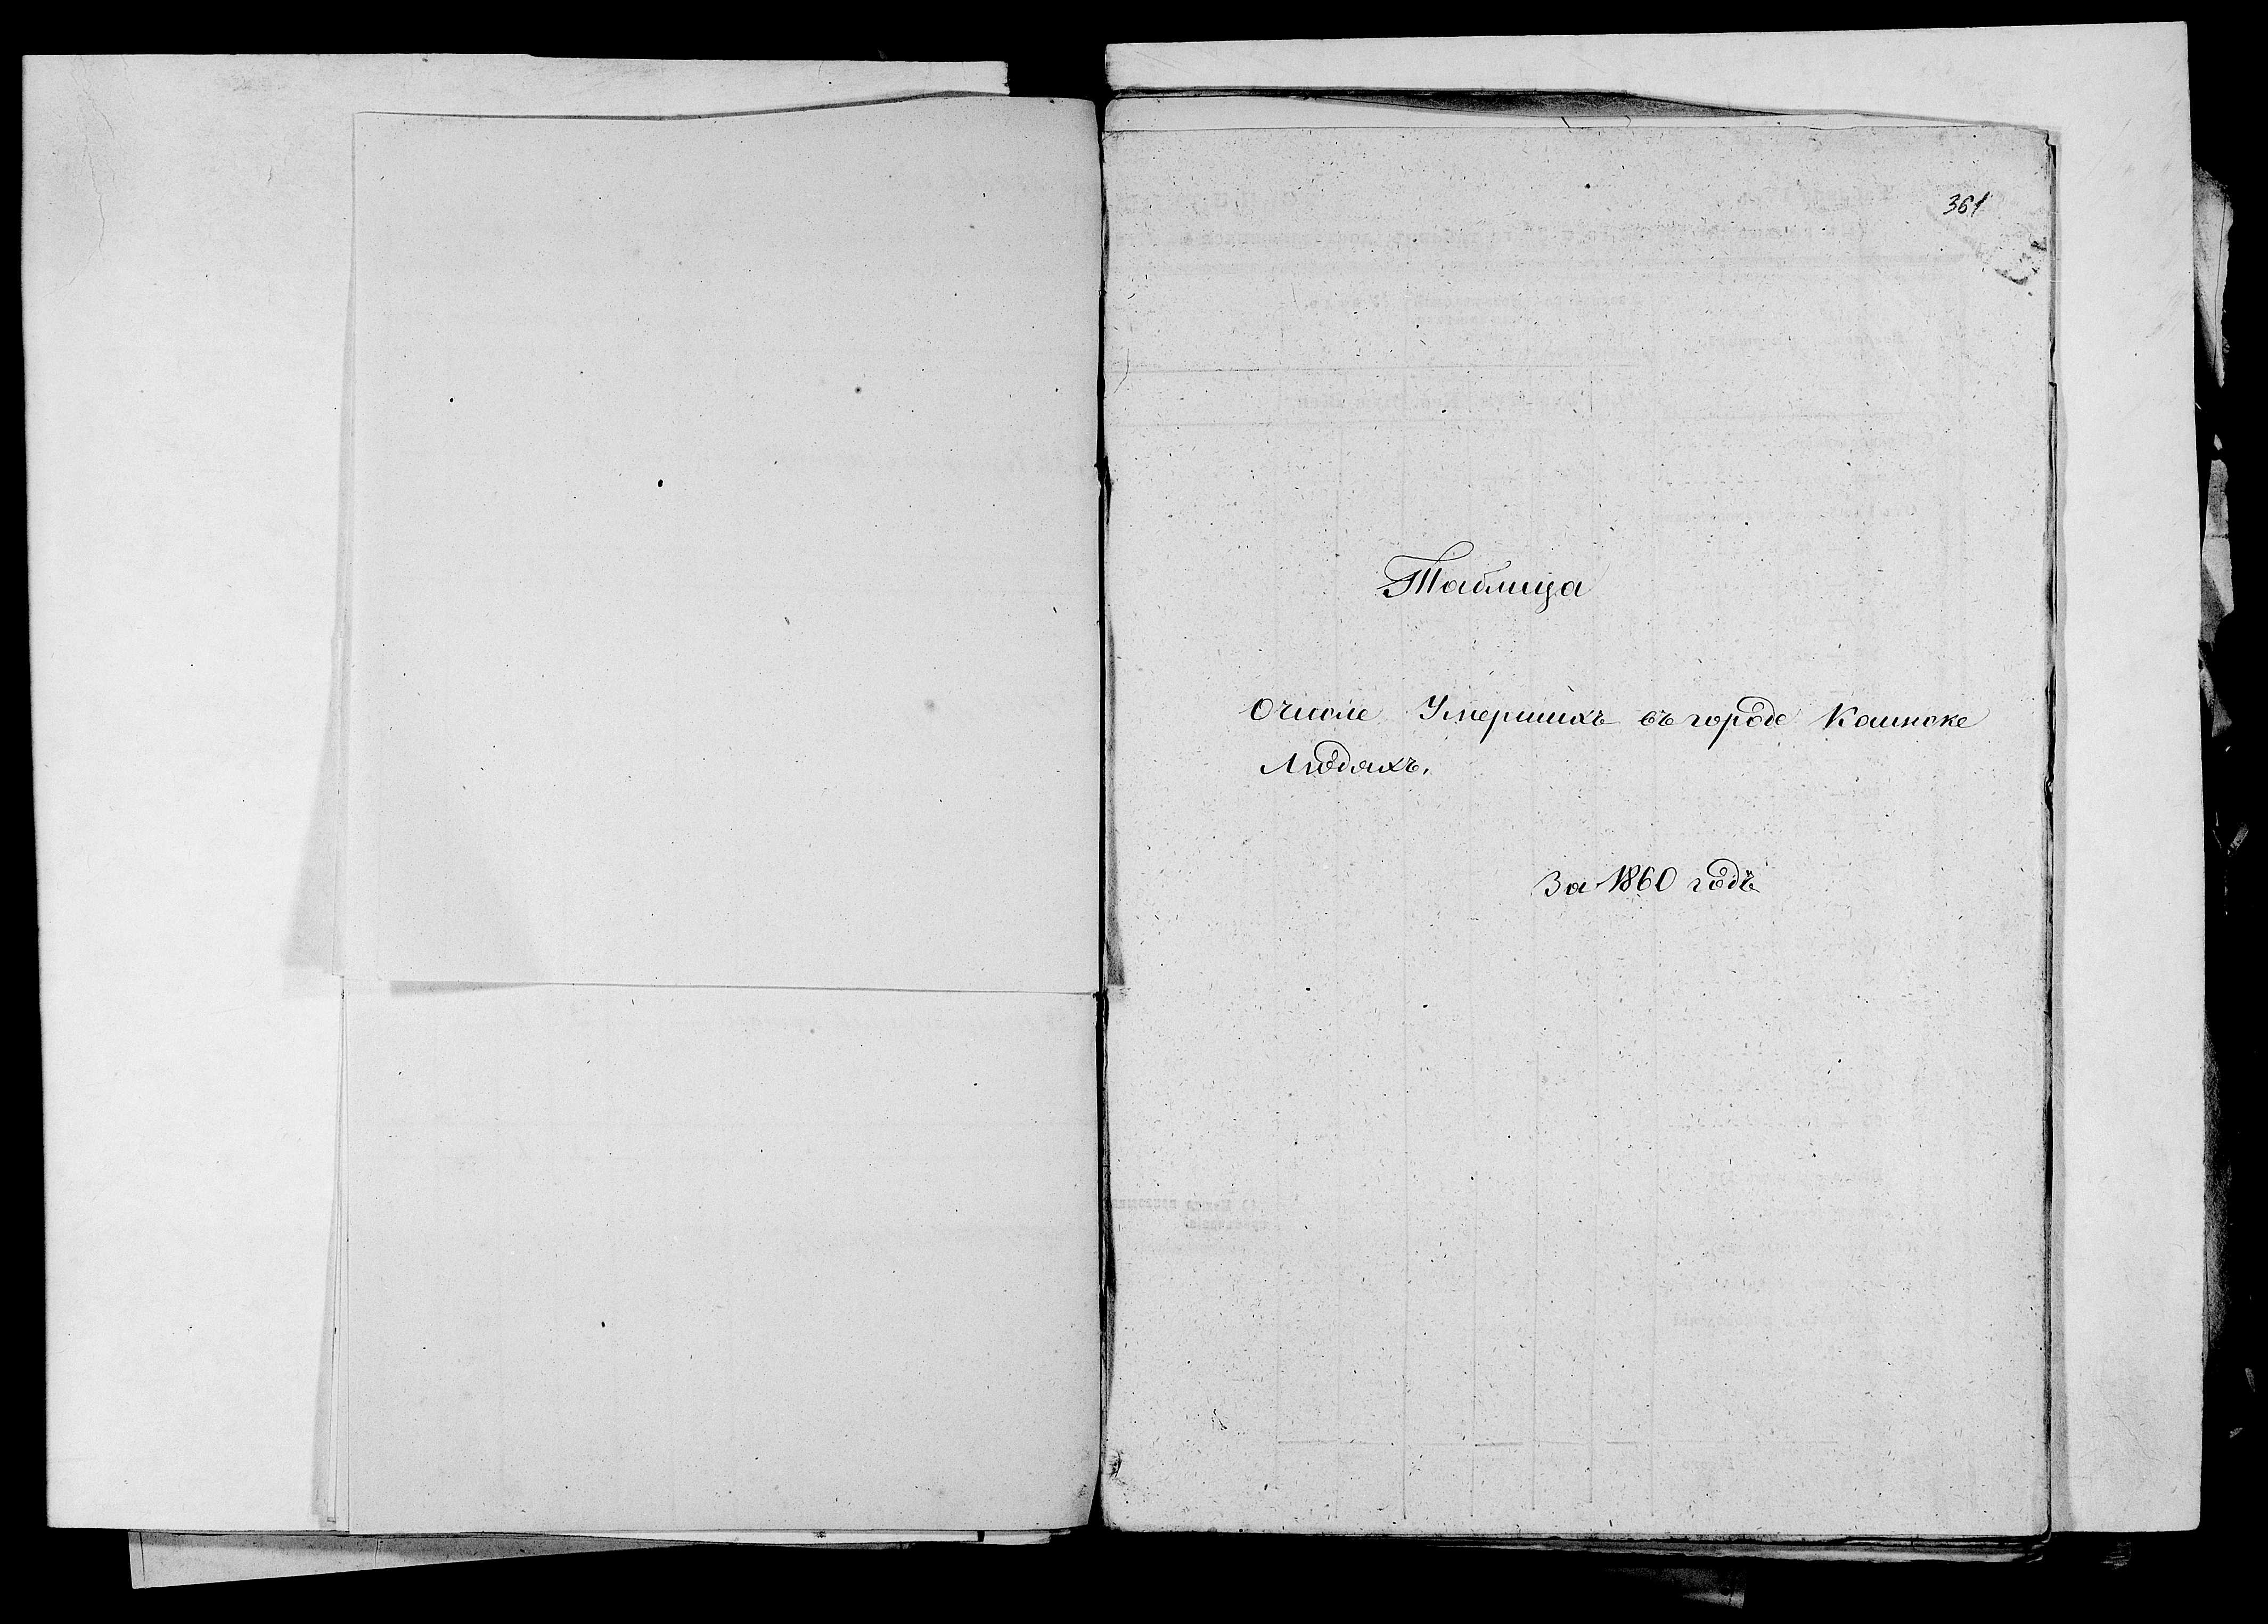 361
Таблица
О числе Умершихъ въ городе Каинске
Людяхъ.
За 1860 годъ